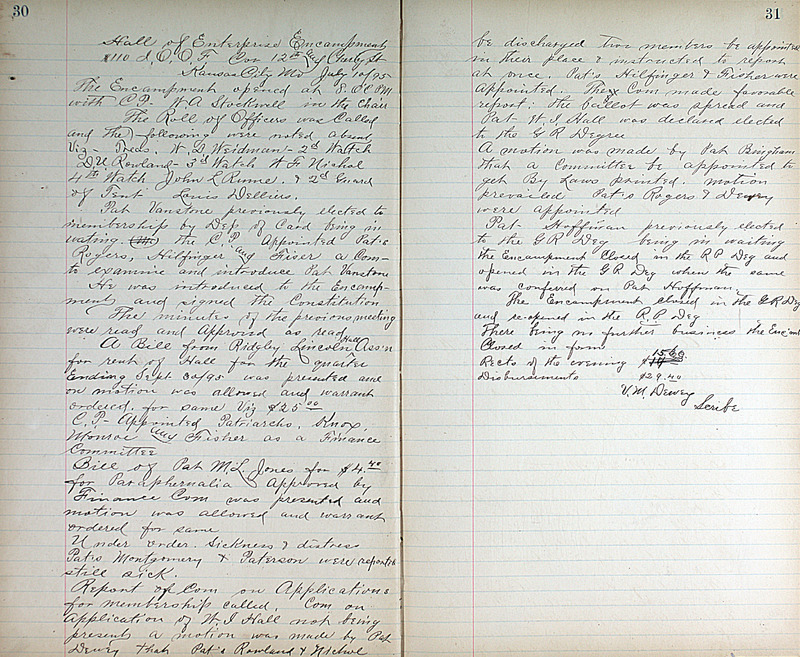 30
Hall of Enterprise Encampment
#110 I.O.O.F. Cor 12th & Cherry St
Kansas City Mo July 10/95
The Encampment opened at 8. O'C P.M
with C.P. W A Stockwell in the Chair
The Roll of Officers was Called
and the following were noted absent
Viz - Treas. W. D Weidman - 2d Watch
D. U Rowland - 3d Watch W F Nichol
4th Watch John L Rume. & 2d Guard
of Tent Louis Delliers.
Pat Vanstone previously elected to
membership by Dep of Card being in
waiting. the C.P. Appointed Pat's
Rogers, Hilfinger and Fiser a Com-
to examine and introduce Pat Vanstone
He was introduced to the Encamp-
ment and signed the Constitution
The minutes of the previous meeting
were read and Approved as read
A Bill from Ridgley Lincoln Hall Ass'n
for rent of Hall for the quarter
Ending Sept 30/95 was presented and
on motion was allowed and warrant
ordered. for same Viz $25.00
C.P- Appointed Patriarchs, Knox,
Monroe and Fisher as a Finance
Committee
Bill of Pat M. L. Jones for $4.40
for Paraphernalia Approved by
Finance Com was presented and
motion was allowed and warrant
ordered for same
Under order. Sickness & distress
Pat's Montgomery & Paterson were reported
still sick.
Report of Com on Applications
for membership called, Com on
Application of W. I Hall not being
present a motion was made by Pat
Dewey that Pat's Rowland & Nichol
31
be discharged two members be appointed
in their place & instructed to report
at once. Pat's Hilfinger & Fisher were
Appointed. The Com made favorable
report; the ballot was spread and
Pat W. I. Hall was declared elected
to the G R Degree
A motion was made by Pat
that a Committee be appointed to
get By Laws printed. motion
prevailed Pat's Rogers & Dewey
were appointed
Pat- Hoffman previously elected
to the G R Deg being in waiting
the Encampment Closed in the R P Deg and
opened in the G R Deg when the same
was conferred on Pat Hoffman.
The Encampment closed in the G R Deg
and re-opened in the R.P. Deg
There being no further business the Enc'mt
Closed in form
Rects of the evening $15.60
Disbursements $29.40
V. M Dewey
Scribe